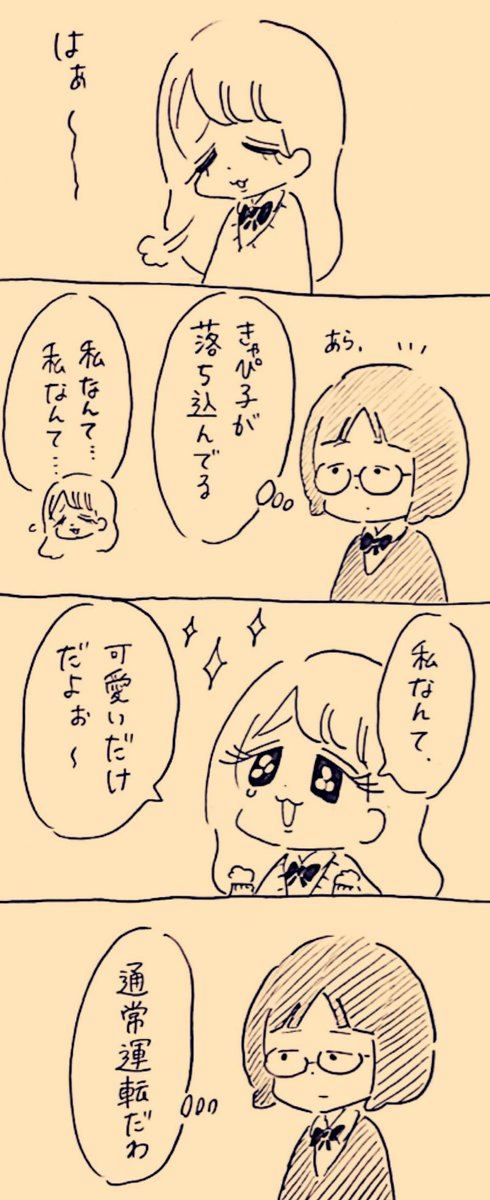 はぁ〜
あら、
きゃぴ子が
落ち込んでる
私なんて…
私なんて…
私なんて、
可愛いだけ
だよぉ〜
通常運転だわ